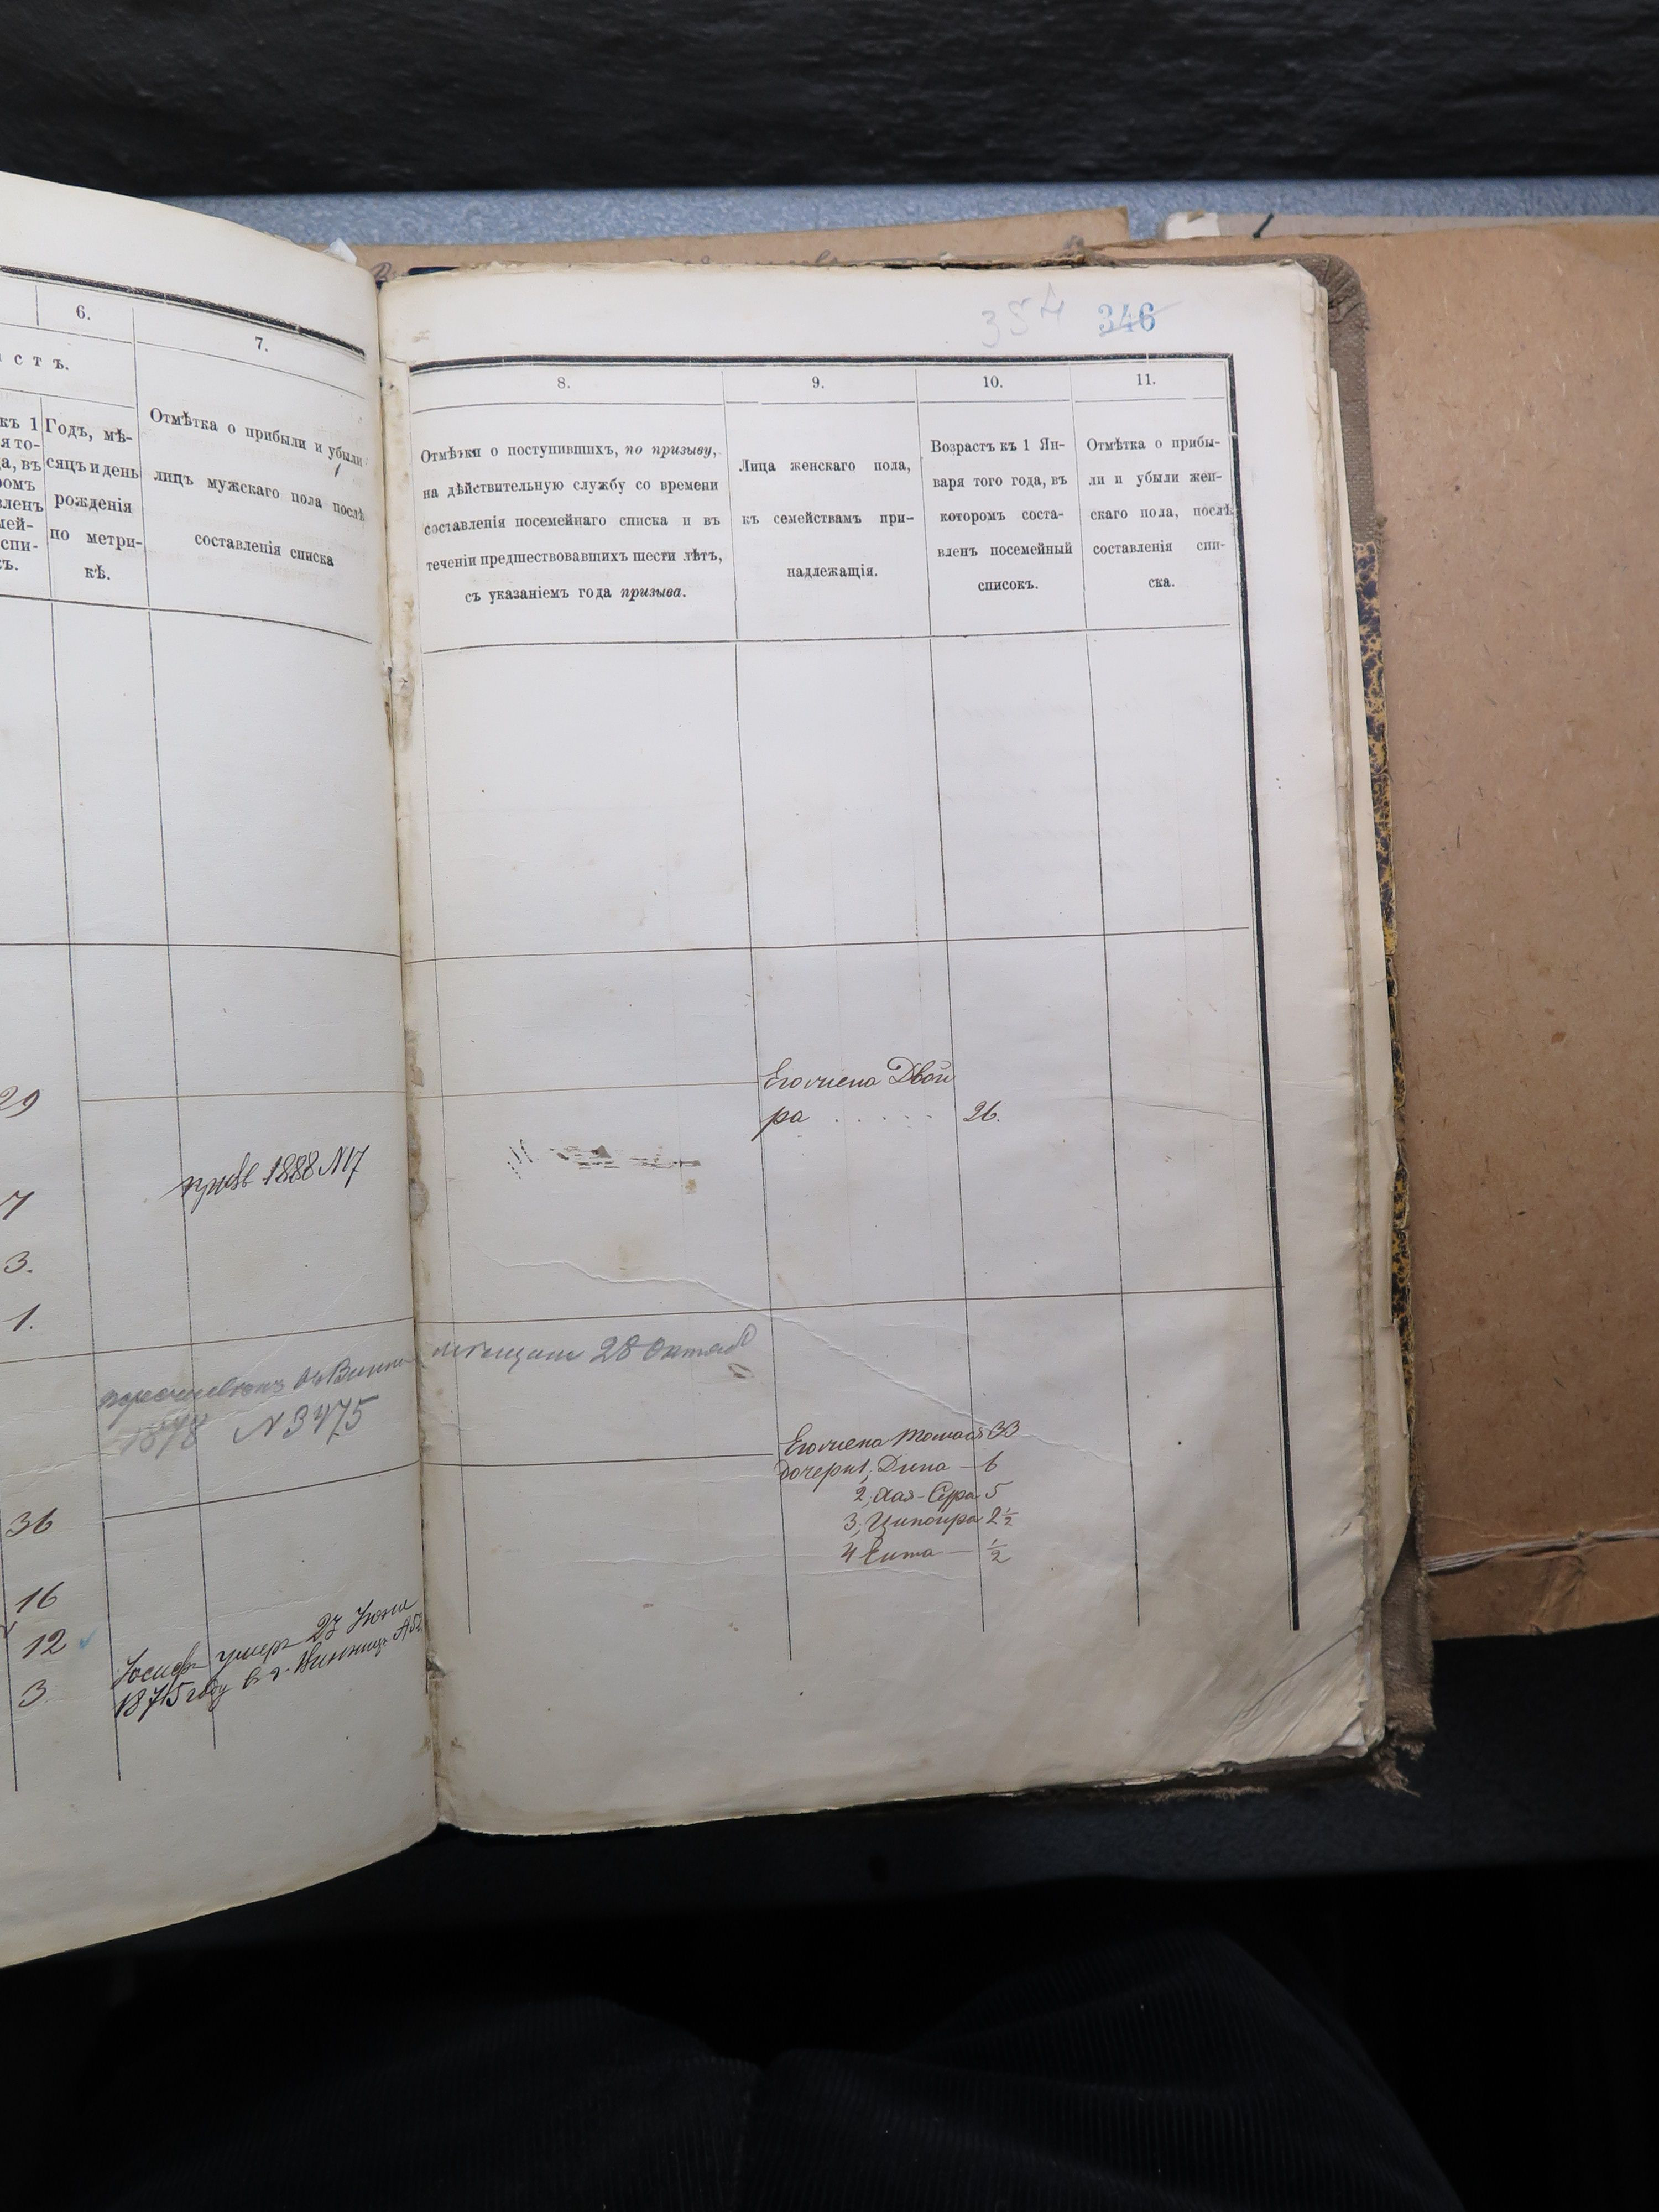 6.
7.
с т ъ.
къ 1
я то-
да, въ
ромъ
вленъ
мей-
спи-
Годъ, мѣ-
сяцъ и день
рожденія
по метри-
кѣ.
Отмѣтка о прибыли и убыли
лицъ мужскаго пола послѣ
составленія списка
29
7
призв 1888 N17
3.
1.
1878 N 3475
36
16
12
3
Іосифъ умеръ 27 Іюня
1875 году въ г. Винницѣ
346
8.
9.
10.
11.
Отмѣтки о поступившихъ, по призыву,
на дѣйствительную службу со времени
составленія посемейнаго списка и въ
теченіи предшествовавшихъ шести лѣтъ,
съ указаніемъ года призыва.
Лица женскаго пола,
къ семействамъ при-
надлежащія.
Возрастъ къ 1 Ян-
варя того года, въ
которомъ соста-
вленъ посемейный
списокъ.
Отмѣтка о прибы-
ли и убыли жен-
скаго пола, послѣ
составленія спи-
ска.
Его жена Двой
ра . . . . . 26.
мѣщане 28 Октяб
Его жена 33
дочери 1, Дина — 6
2, Хая-Сура 5
3, Ципойра 2½
4 Ента — ½